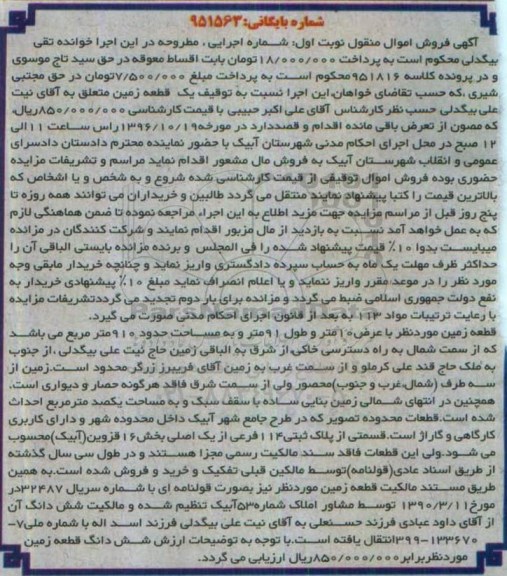 شماره بایگانی: ۹۵۱۵۶۳
آگهی فروش اموال منقول نوبت اول: شماره اجرایی ، مطروحه در این اجرا خوانده تقی
بیگدلی محکوم است به پرداخت ۱۸/۰۰۰/۰۰۰تومان بابت اقساط معوقه در حق سید تاج موسوی
و در پرونده کلاسه ۹۵۱۸۱۶محکوم است به پرداخت مبلغ ۷/۵۰۰/۰۰۰تومان در حق مجتبی
شیری ،که حسب تقاضای خواهان،این اجرا نسبت به توقیف یک قطعه زمین متعلق به آقای نیت
علی بیگدلی حسب نظر کارشناس آقای علی اکبر حبیبی با قیمت کارشناسی ۸۵۰/۰۰۰/۰۰۰ریال،
که مصون از تعرض باقی مانده اقدام و قصددارد در مورخه۱۳۹۶/۱۰/۱۹راس ساعت ۱۱الی
۱۲ صبح در محل اجرای احکام مدنی شهرستان آبیک با حضور نماینده محترم دادستان دادسرای
عمومی و انقلاب شهرستان آبیک به فروش مال مشعور اقدام نماید مراسم و تشریفات مزایده
حضوری بوده فروش اموال توقیفی از قیمت کارشناسی شده شروع و به شخص و یا اشخاص که
بالاترین قیمت را کتبا پیشنهاد نماید منتقل می گردد طالبین و خریداران می توانند همه روزه تا
پنج روز قبل از مراسم مزایده جهت مزید اطلاع به این اجراء مراجعه نموده تا ضمن هماهنگی لازم
که به عمل خواهد آمد نسبت به بازدید از مال مزبور اقدام نمایند و شرکت کنندگان در مزانده
میبایست بدوا ۱۰٪ قیمت پیشنهاد شده را فی المجلس و برنده مزانده بایستی الباقی آن را
حداکثر ظرف مهلت یک ماه به حساب سپرده دادگستری واریز نماید و چنانچه خریدار مابقی وجه
مورد نظر را در موعد مقرر واریز ننماید و یا اعلام انصراف نماید مبلغ ۱۰٪ پیشنهادی خریدار به
نفع دولت جمهوری اسلامی ضبط می گردد و مزانده برای بار دوم تجدید می گرددتشریفات مزایده
با رعایت ترتیبات مواد ۱۱۳ به بعد از قانون اجرای احکام مدنی صورت می گیرد.
قطعه زمین موردنظر با عرض۱۰متر و طول ۹۱متر و به مساحت حدود ۹۱۰متر مربع می باشد
که از سمت شمال به راه دسترسی خاکی از شرق به الباقی زمین حاج نیت علی بیگدلی ،از جنوب
به ملک حاج قند علی کرملو و از سمت غرب به زمین آقای فریبرز زرگر محدود است.زمین از
سه طرف (شمال،غرب و جنوب)محصور ولی از سمت شرق فاقد هرگونه حصار و دیواری است.
همچنین در انتهای شمالی زمین بنایی ساده با سقف سبک و به مساحت یکصد مترمربع احداث
شده است.قطعات محدوده تصویر که در طرح جامع شهر آبیک داخل محدوده شهر و دارای کاربری
کارگاهی و گاراژ است.قسمتی از پلاک ثبتی۱۱۴فرعی از یک اصلی بخش۱۶ قزوین(آبیک)محسوب
می شود.ولی این قطعات فاقد سند مالکیت رسمی مجزا هستند و در طول سی سال گذشته
از طریق اسناد عادی(قولنامه)توسط مالکین قبلی تفکیک و خرید و فروش شده است.به همین
طریق مستند مالکیت قطعه زمین موردنظر نیز بصورت قولنامه ای با شماره سریال ۳۲۴۸۷در
مورخ۱۳۹۰/۳/۱۱ توسط مشاور املاک شماره۵۳آبیک تنظیم شده و مالکیت شش دانگ آن
از آقای داود عبادی فرزند حسنعلی به آقای نیت علی بیگدلی فرزند اسد اله با شماره ملی۷-
۱۳۳۶۷۰-۳۹۹انتقال یافته است.با توجه به توضیحات ارزش شش دانگ قطعه زمین
موردنظربرابر۸۵۰/۰۰۰/۰۰۰ریال ارزیابی می گردد.